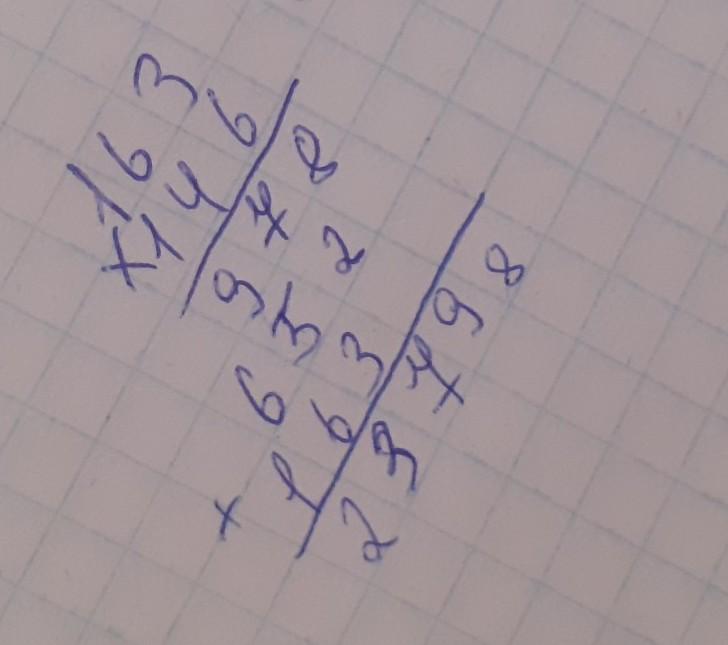 163
×146
978
652
+163
23798